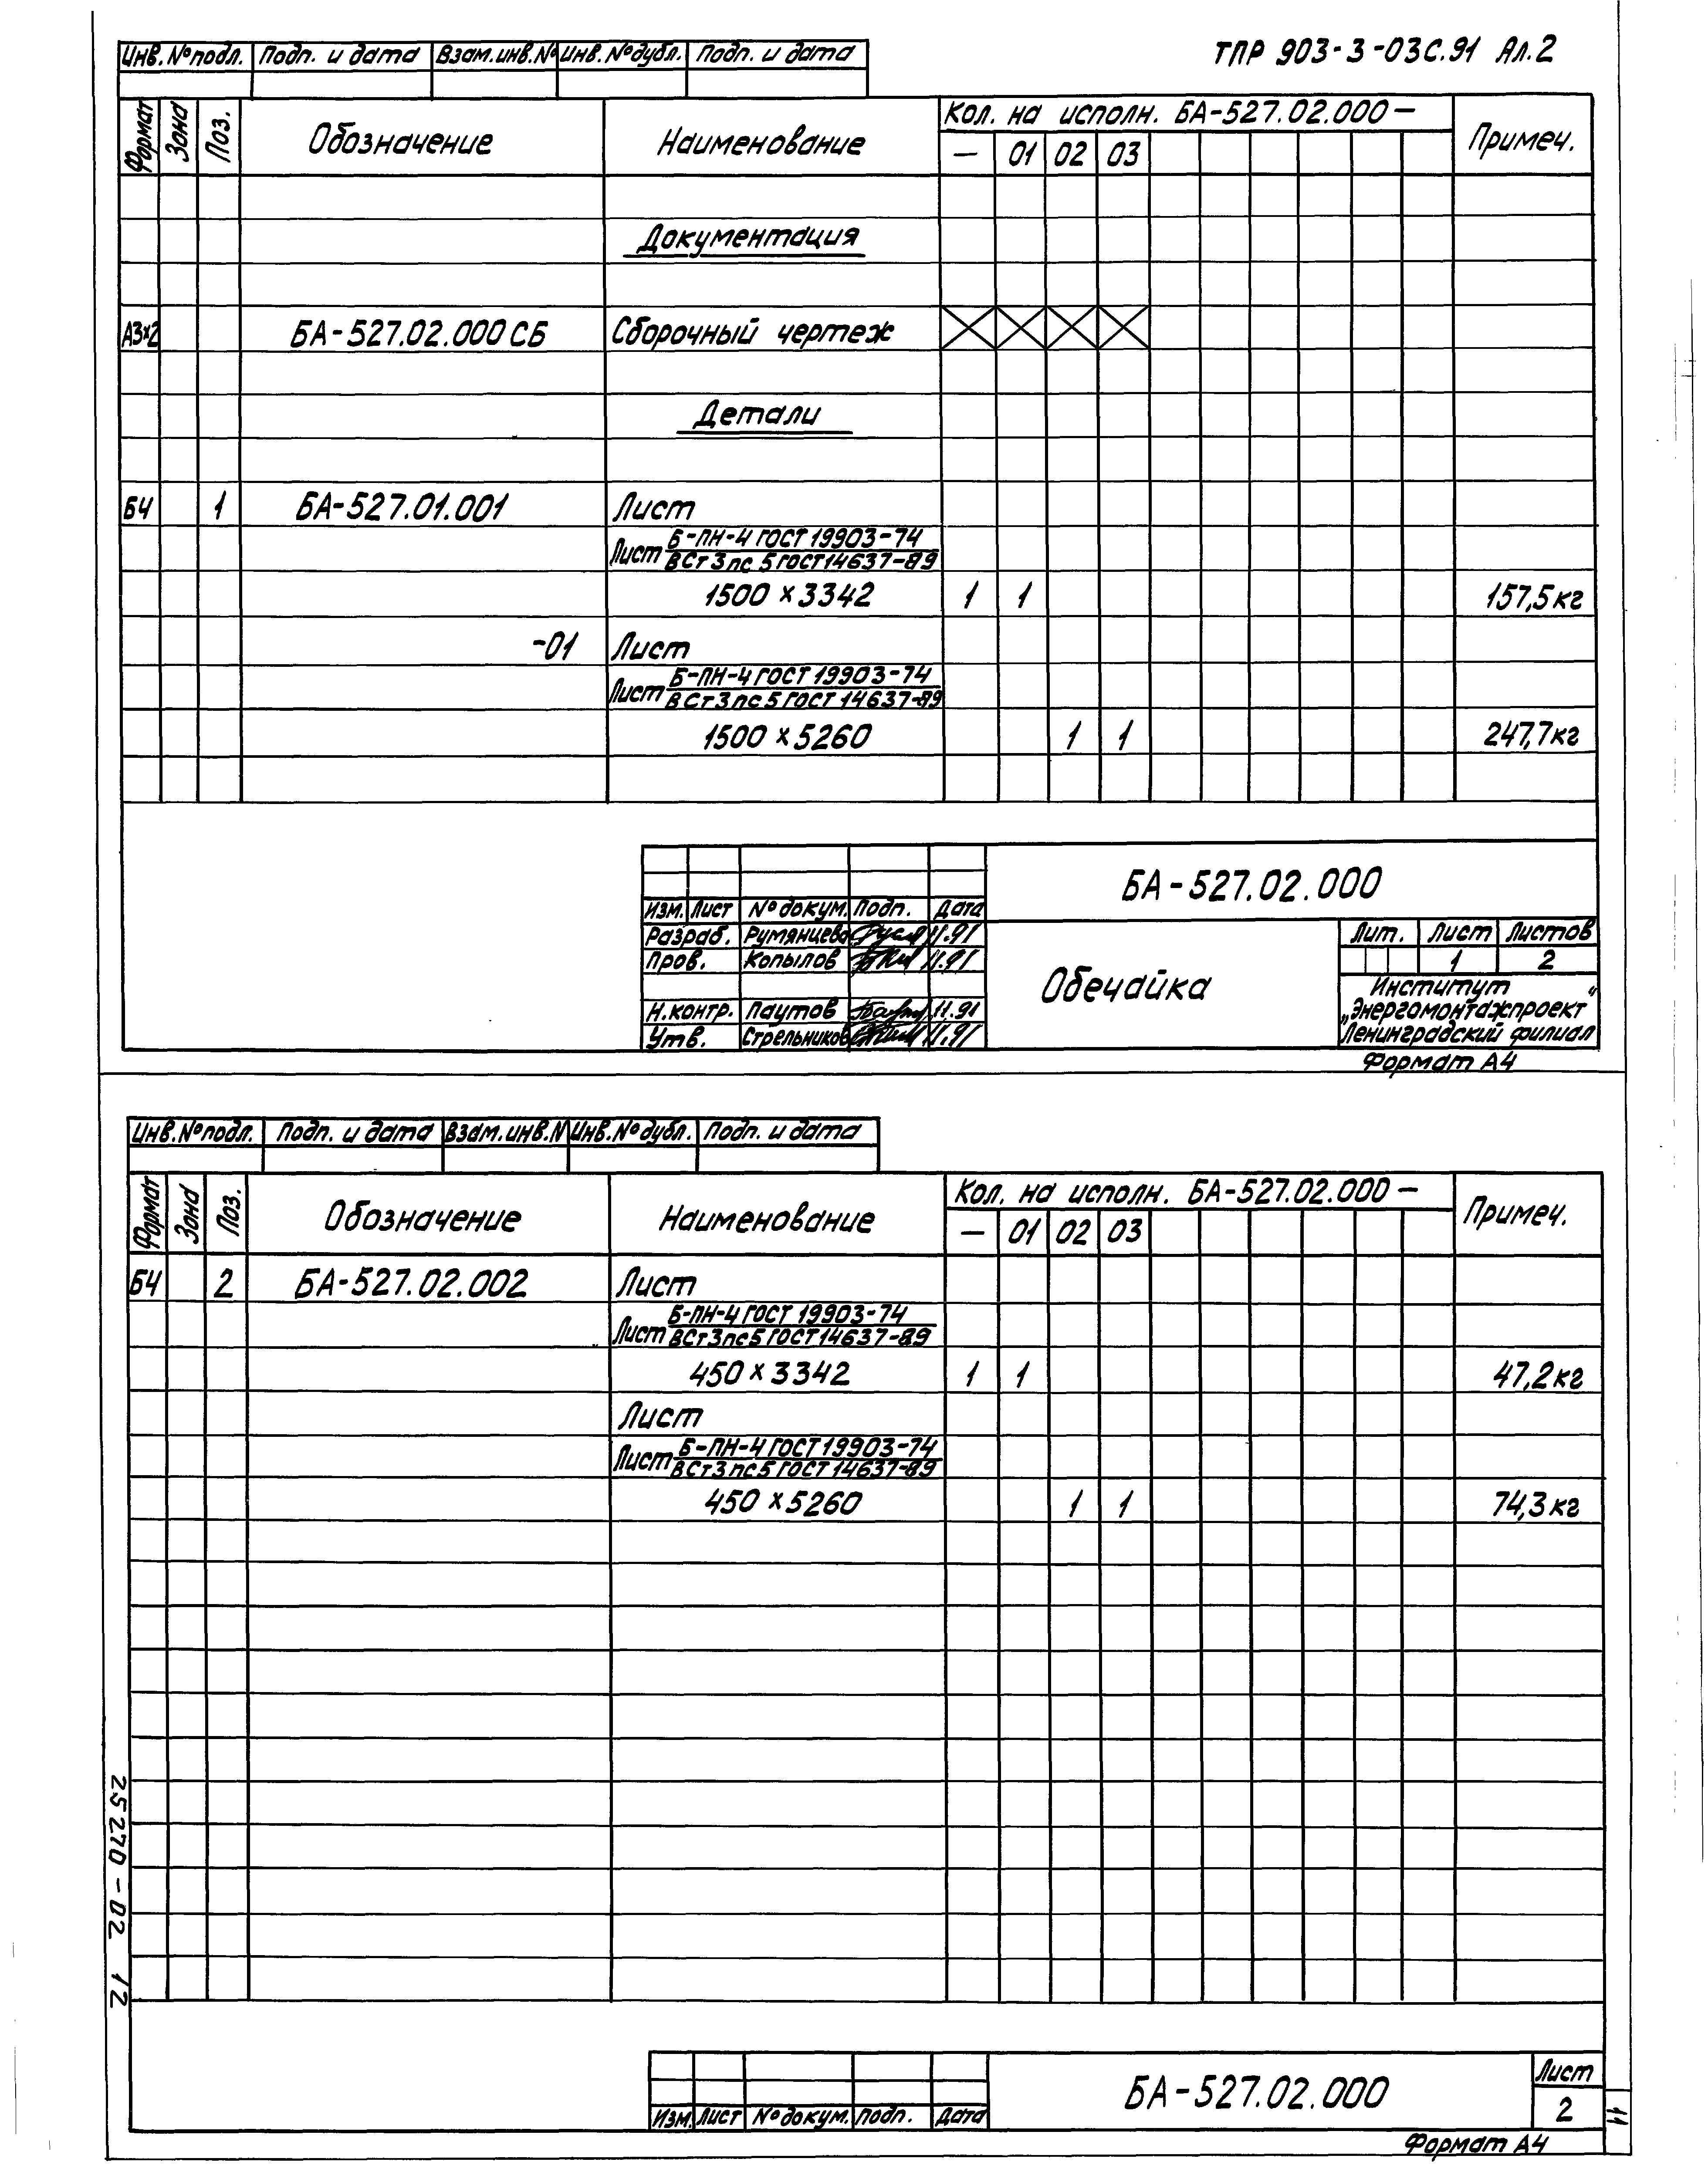 ТПР 903-3-03С.91 Ал.2
Инв. № подл. Подп. и дата Взам. инв. № Инв. № дубл. Подп. и дата
Формат Зона Поз. Обозначение Наименование Кол. на исполн. БА-527.02.000 — Примеч.
— 01 02 03
Документация
А3х2 БА-527.02.000 СБ Сборочный чертеж
Детали
Б4 1 БА-527.01.001 Лист
Б-ПН-4 ГОСТ 19903-74
Лист ВСт3пс5 ГОСТ 14637-89
1500 х 3342 1 1 157,5 кг
-01 Лист
Б-ПН-4 ГОСТ 19903-74
Лист ВСт3пс5 ГОСТ 14637-89
1500 х 5260 1 1 247,7 кг
БА-527.02.000
Изм. Лист № докум. Подп. Дата
Разраб. Румянцева 11.91
Пров. Копылов 11.91
Н.контр. Паутов 11.91
Утв. Стрельников 11.91
Обечайка
Лит. Лист Листов
1 2
Институт
„Энергомонтажпроект“
Ленинградский филиал
Формат А4
Инв. № подл. Подп. и дата Взам. инв. № Инв. № дубл. Подп. и дата
Формат Зона Поз. Обозначение Наименование Кол. на исполн. БА-527.02.000 — Примеч.
— 01 02 03
Б4 2 БА-527.02.002 Лист
Б-ПН-4 ГОСТ 19903-74
Лист ВСт3пс5 ГОСТ 14637-89
450 х 3342 1 1 47,2 кг
Лист
Б-ПН-4 ГОСТ 19903-74
Лист ВСт3пс5 ГОСТ 14637-89
450 х 5260 1 1 74,3 кг
25270-02 12
Изм. Лист № докум. Подп. Дата
БА-527.02.000
Лист
2
11
Формат А4